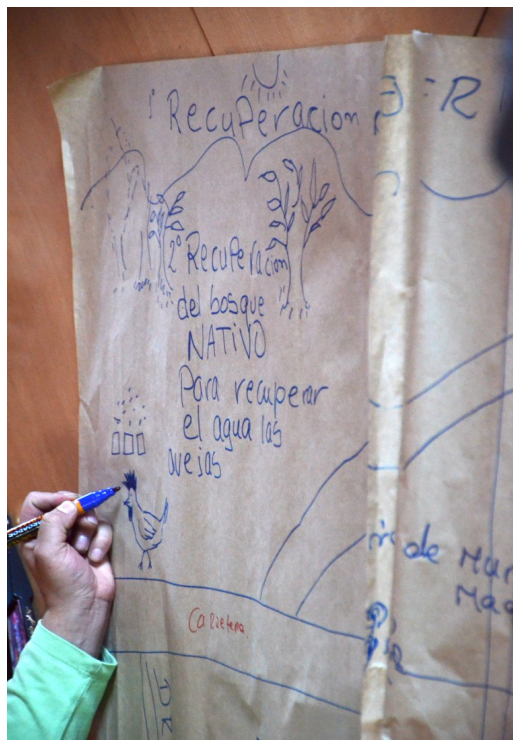 1° Recuperacion
R
2° Recuperacion
del bosque
NATIVO
Para recuperar
el agua las
ovejas
de Mar
Carretera